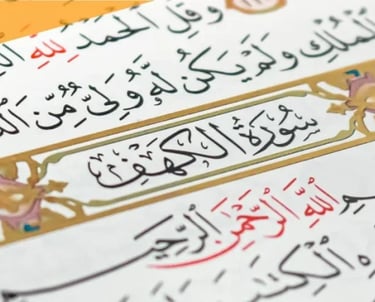 وَقُلِ الْحَمْدُ لِلَّهِ
الْمُلْكِ وَلَمْ يَكُن لَّهُ وَلِيٌّ مِّنَ
سُورَةُ الْكَهْفِ
اللَّهِ الرَّحْمَٰنِ الرَّحِيمِ